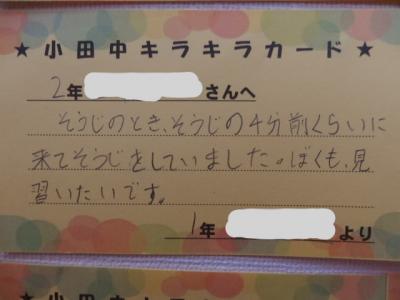 ★小田中キラキラカード★
2年 さんへ
そうじのとき、そうじの4分前くらいに
来てそうじをしていました。ぼくも、見
習いたいです。
1年 より
★小田中キラキラカード★